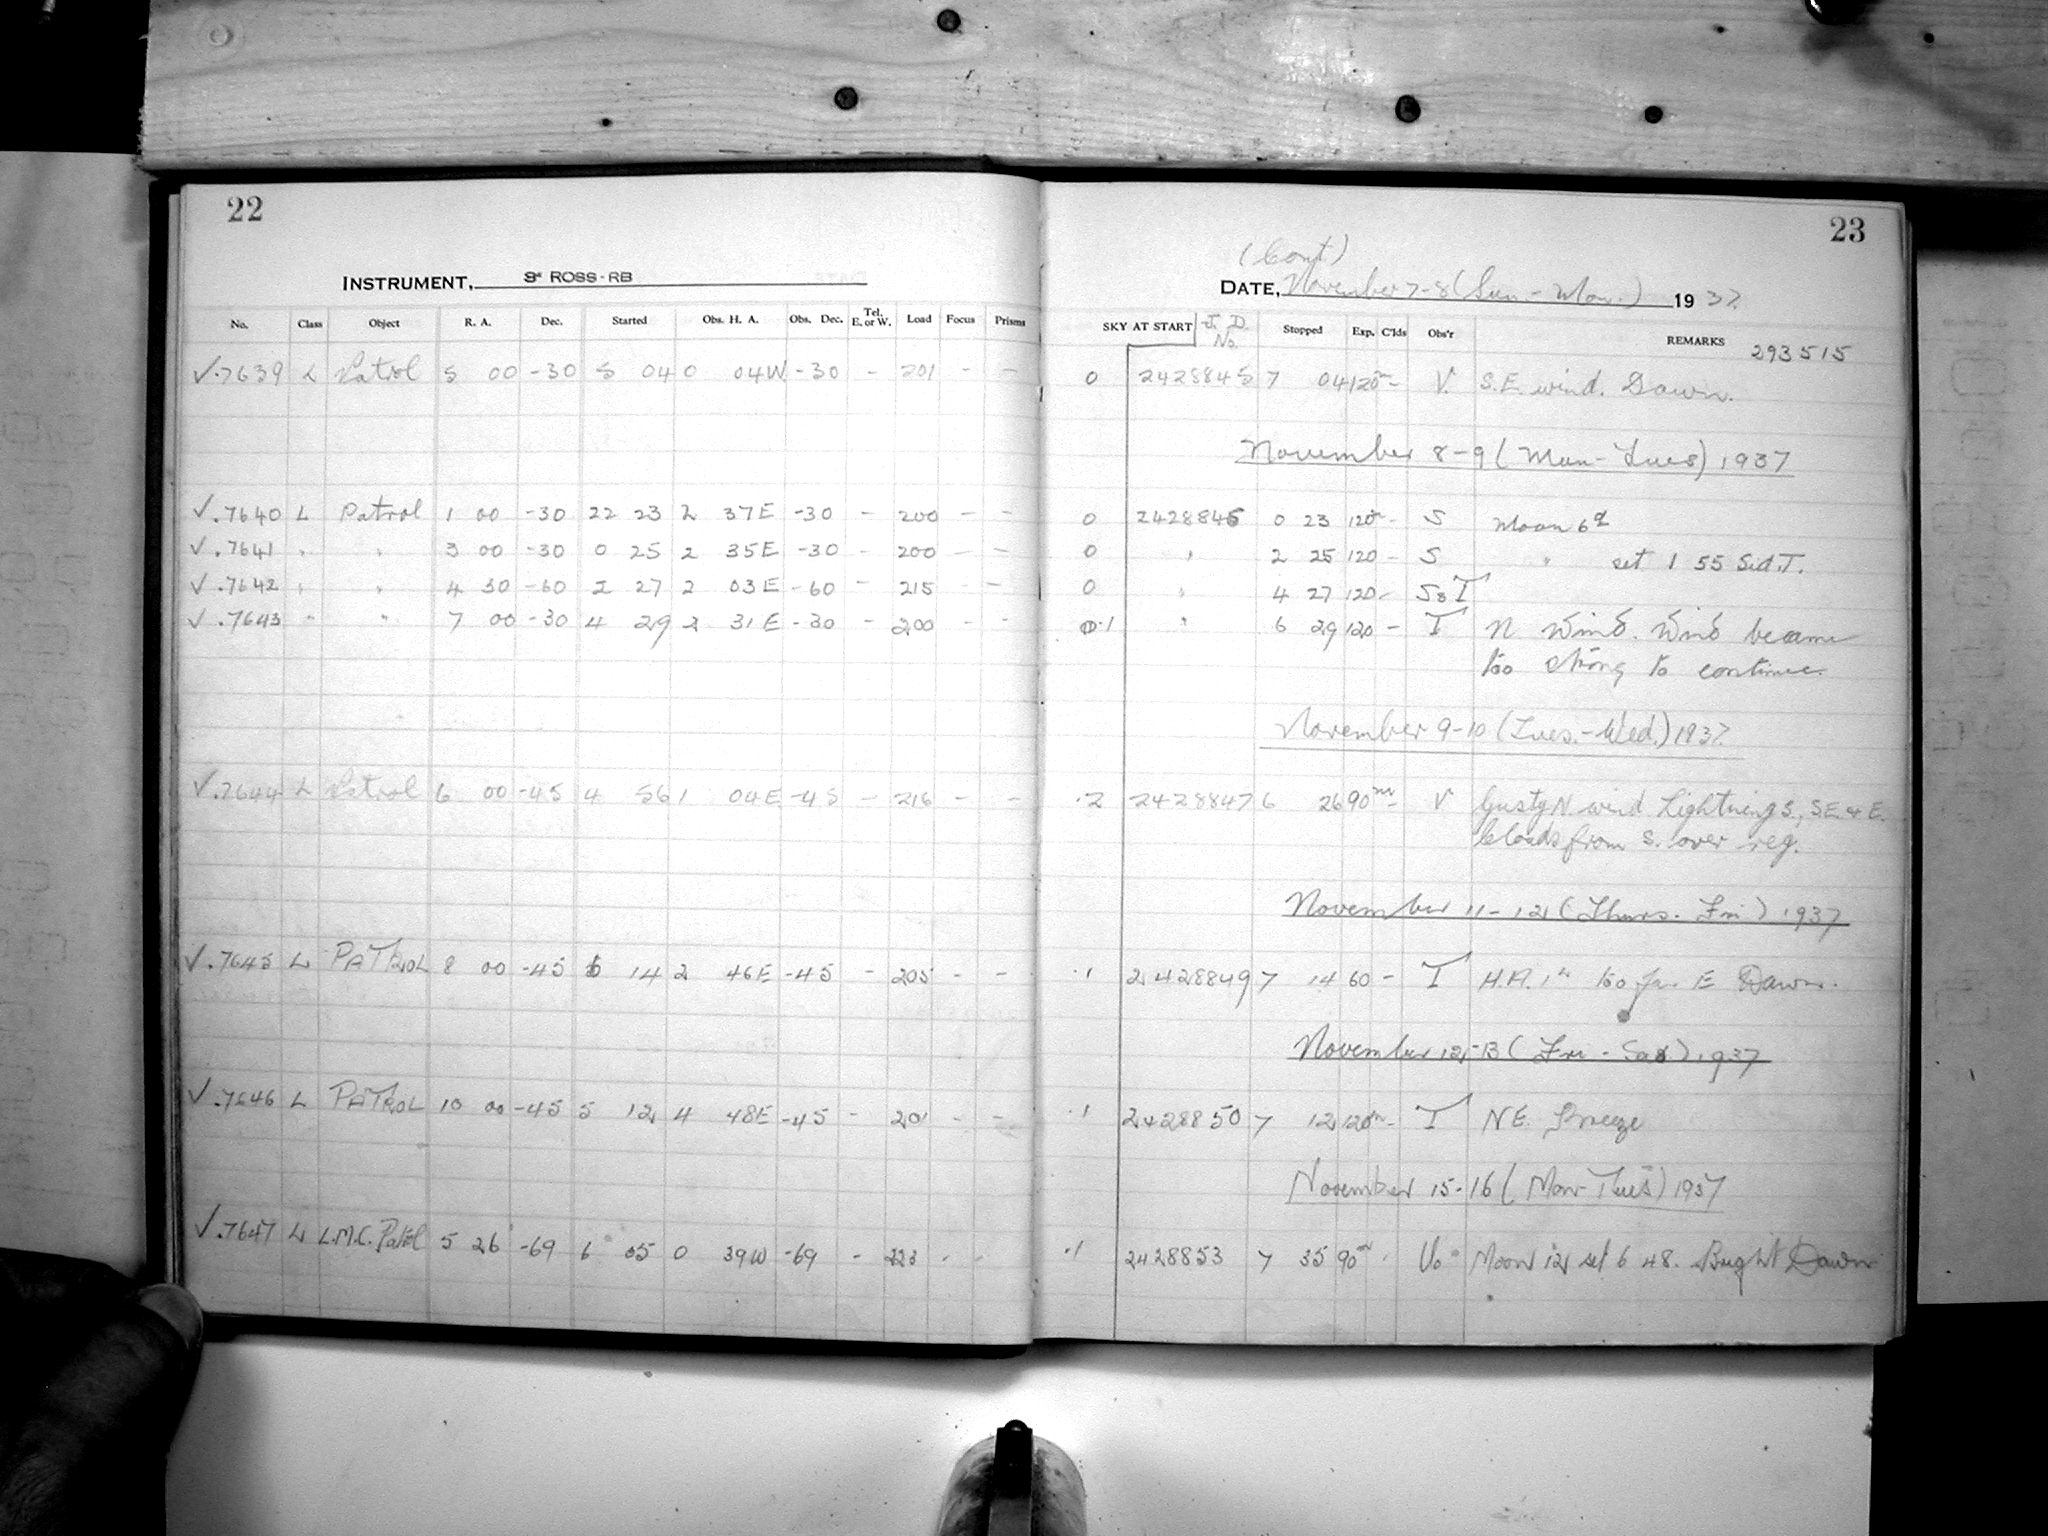 22
INSTRUMENT, 3" ROSS-RB
No. Class Object R. A. Dec. Started Obs. H. A. Obs. Dec. Tel. E. or W. Load Focus Prisms
✓.7639 L Patrol 5 00 -30 5 04 0 04W -30 - 201 - -
✓.7640 L Patrol 1 00 -30 22 23 2 37E -30 - 200 - -
✓.7641 " " 3 00 -30 0 25 2 35E -30 - 200 - -
✓.7642 " " 4 30 -60 2 27 2 03E -60 - 215 - -
✓.7643 " " 7 00 -30 4 29 2 31E -30 - 200 - -
✓.7644 L Patrol 6 00 -45 4 56 1 04E -45 - 216 - -
✓.7645 L PATROL 8 00 -45 6 14 2 46E -45 - 205 - -
✓.7646 L PATROL 10 00 -45 5 12 4 48E -45 - 201 - -
✓.7647 L L.M.C. Patrol 5 26 -69 6 05 0 39W -69 - 223 - -
23
(Cont)
DATE, November 7-8 (Sun-Mon.) 1937.
SKY AT START J. D. No. Stopped Exp. C'lds Obs'r REMARKS 293515
0 2428845 7 04 120m - V. S.E. wind. Dawn.
November 8-9 (Mon-Tues) 1937
0 2428846 0 23 120m - S Moon 6d
0 " 2 25 120 - S " set 1 55 Sid.T.
0 " 4 27 120 - S&T
0.1 " 6 29 120 - T N Wind. Wind became
too strong to continue.
November 9-10 (Tues.-Wed.) 1937.
.2 2428847 6 26 90m - V Gusty N. wind Lightning S., SE. & E.
Clouds from S. over reg.
November 11-12 (Thurs-Fri) 1937
.1 2428849 7 14 60 - T H.A. 1h too far E Dawn.
November 12-13 (Fri-Sat) 1937
.1 2428850 7 12 120m - T NE. Breeze
November 15-16 (Mon-Tues) 1937
.1 2428853 7 35 90m - Vo Moon 12 set 6 48. Bright Dawn